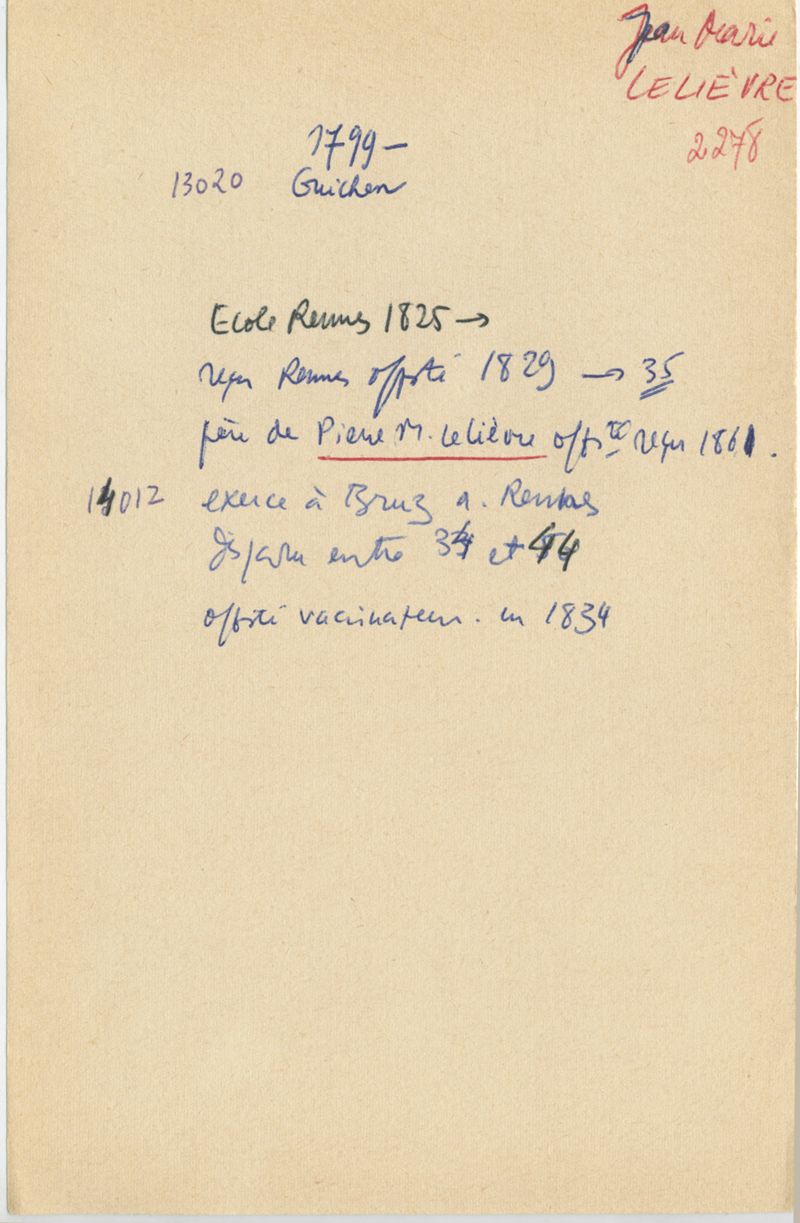 Jean Marie
LELIÈVRE
2278
1799 –
13020 Guichen
Ecole Rennes 1825 →
reçu Rennes offsté 1829 → 35
père de Pierre M. Lelièvre offs.té reçu 1861.
14012 exerce à Bruz a. Rennes
disparu entre 34 et 44
offsté vaccinateur. en 1834